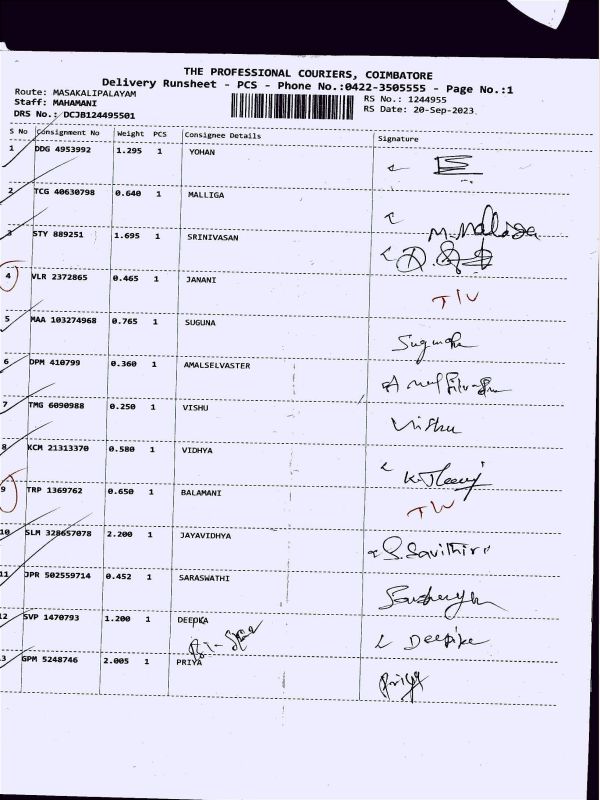 THE PROFESSIONAL COURIERS, COIMBATORE
Delivery Runsheet - PCS - Phone No.:0422-3505555 - Page No.:1
Route: MASAKALIPALAYAM
RS No.: 1244955
Staff: MAHAMANI
RS Date: 20-Sep-2023
DRS No.: DCJB124495501
S No Consignment No Weight PCS Consignee Details Signature
1 DDG 4953992 1.295 1 YOHAN
2 TCG 40630798 0.640 1 MALLIGA
M.Malliga
3 STY 889251 1.695 1 SRINIVASAN
4 VLR 2372865 0.465 1 JANANI
5 MAA 103274968 0.765 1 SUGUNA
Suguna
6 DPM 410799 0.360 1 AMALSELVASTER
7 TMG 6090988 0.250 1 VISHU
Vishu
8 KCM 21313370 0.580 1 VIDHYA
9 TRP 1369762 0.650 1 BALAMANI
10 SLM 328657078 2.200 1 JAYAVIDHYA
S.Savithiri
11 JPR 502559714 0.452 1 SARASWATHI
12 SVP 1470793 1.200 1 DEEPKA
Deepika
13 GPM 5248746 2.005 1 PRIYA
Priya